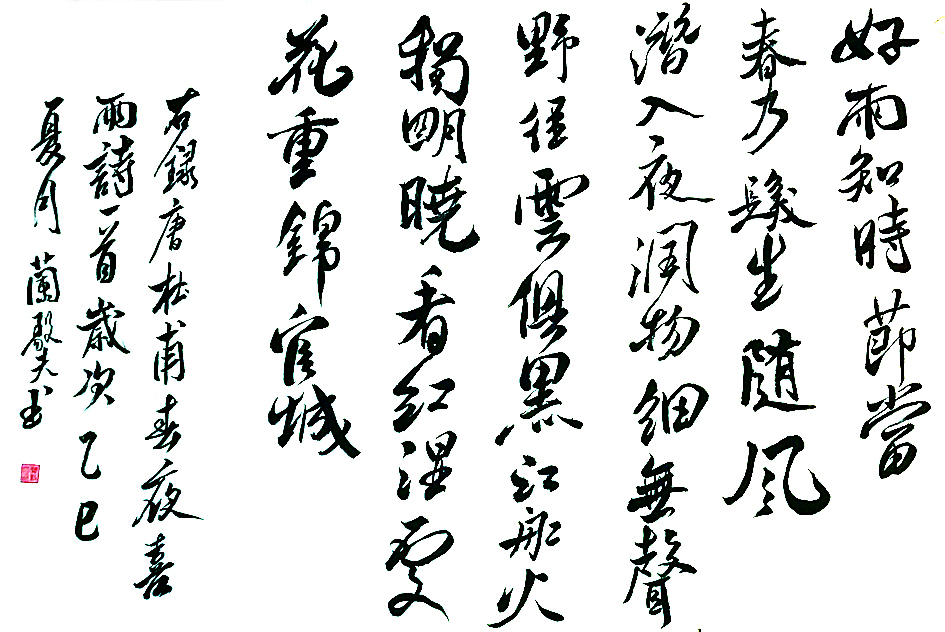 好雨知時節當
春乃髮生随風
潛入夜潤物細無聲
野徑雲俱黑江船火
獨明曉看紅濕處
花重錦官城
右錄唐杜甫春夜喜
雨詩一首歲次乙巳
夏月蘭书